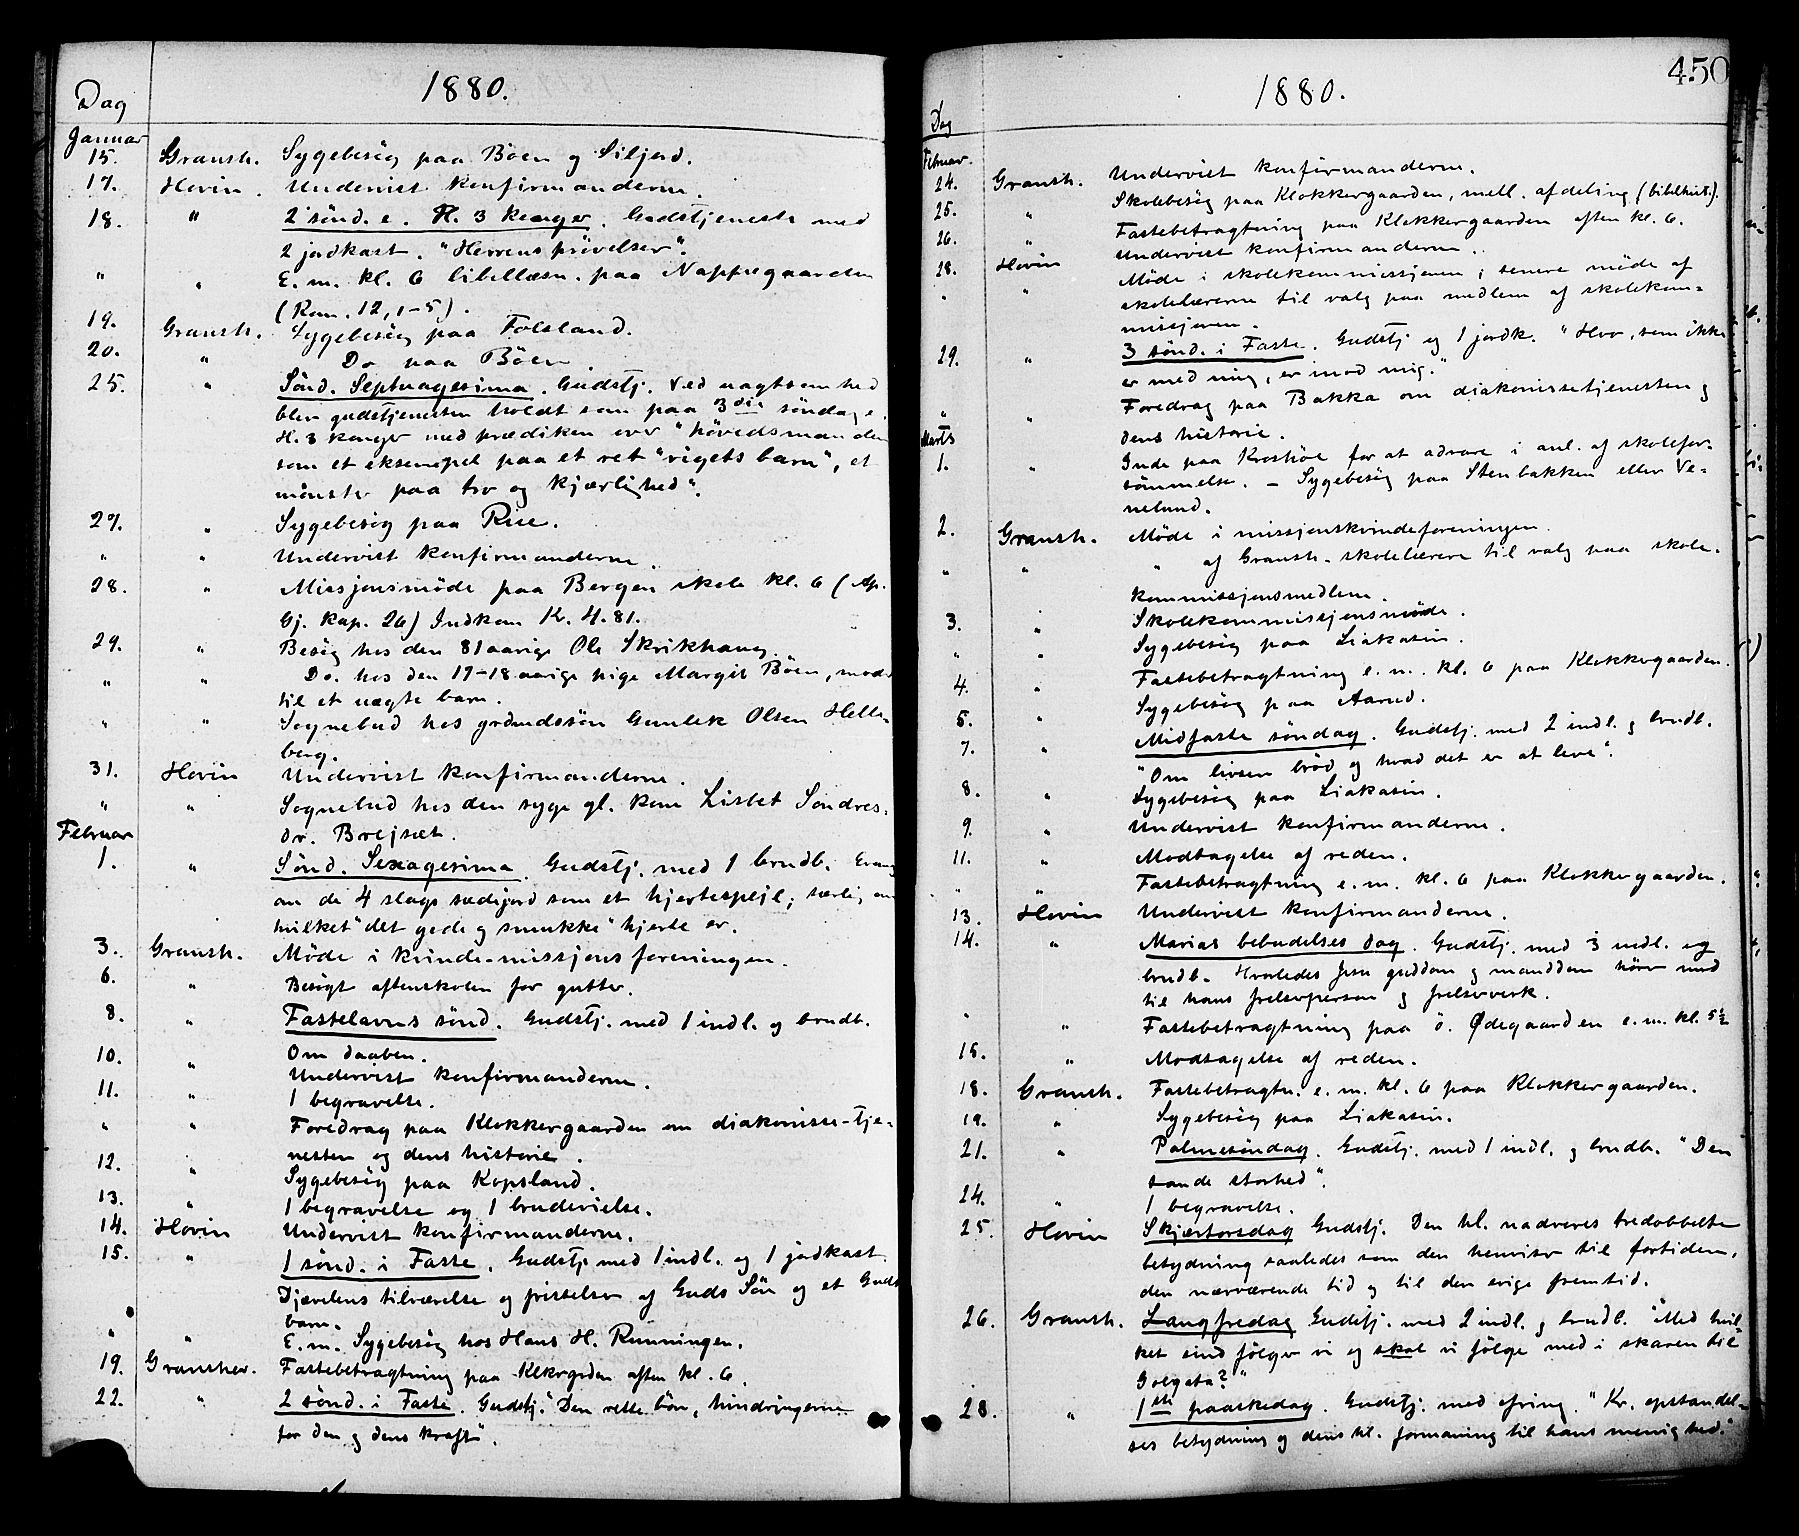 1880.
Dag
Januar
15. Gransh. Sygebesøg paa Bøen og Siljord.
17. Hovin. Undervist konfirmanderne.
18. " 2 sønd. e. H. 3 konger. Gudstjeneste med
2 jordkast. "Herrens prøvelser".
" " E. m. kl. 6 bibellæsn. paa
(Rom. 12, 1-5).
19. Gransh. Sygebesøg paa Folsland.
20. " Do paa Bøen
25. " Sønd. Septuagesima. Gudstj. Ved uagtsomhed
blev gudstjenesten holdt som paa 3die søndag e.
H. 3 konger med prædiken over "høvedsmanden
som et eksempel paa et ret "rigets barn", et
mønster paa tro og kjærlighed".
27. " Sygebesøg paa Rue.
" " Undervist konfirmanderne.
28. " Missjonsmøde paa Bergen skole kl. 6 (Ap.
Gj. kap. 26) Indkom Kr. 4.81.
29. " Besøg hos den 81 aarige Ole Skrikhaug.
" " Do. hos den 17-18 aarige pige Margit Bøen, moder
til et uægte barn.
" " Sognebud hos grdmandssøn Gunlek Olsen Helle-
berg.
31. Hovin Undervist konfirmanderne.
" " Sognebud hos den syge gl. kone Lisbet Søndres-
dr. Brejset.
Februar
1. " Sønd. Sexagesima. Gudstj. med 1 brudb. Evang
om de 4 slags sædejord som et hjertespejl; særlig om
hvilket "det gode og smukke" hjerte er.
3. Gransh. Møde i kvinde-missjonsforeningen.
6. " Besøgt aftenskolen for gutter.
8. " Fastelavns sønd. Gudstj. med 1 indl. og brudb.
Om daaben.
10. " Undervist konfirmanderne.
11. " 1 begravelse.
" " Foredrag paa Klokkergaarden om diakonisse-tje-
nesten og dens historie.
12. " Sygebesøg paa Kopsland.
13. " 1 begravelse og 1 brudevielse.
14. Hovin Undervist konfirmanderne.
15. " 1 sønd. i Faste. Gudstj. med 1 indl. og 1 jordkast.
Djævelens tilværelse og fristelser af Guds Søn og et Guds
barn.
" " E. m. Sygebesøg hos Hans H. Runningen.
19. Gransher. Fastebetragtning paa Klkrgrden aften kl. 6.
22. " 2 sønd. i Faste. Gudstj. "Den rette bøn, hindringerne
for den og dens kraft".
450
1880.
Dag
Februar.
24. Gransh. Undervist konfirmanderne.
25. " Skolebesøg paa Klokkergaarden, mell. afdeling (bibelhist.).
26. " Fastebetragtning paa Klokkergaarden aften kl. 6.
Undervist konfirmanderne.
28. Hovin Møde i skolekommissjonen; senere møde af
" " skolelærerne til valg paa medlem af skolekom-
missjonen.
29. " 3 sønd. i Faste. Gudstj og 1 jordk. "Hvo, som ikke
er med mig, er imod mig."
" " Foredrag paa Bakka om diakonissetjenesten og
dens historie.
Marts
1. " Inde paa Kroshøe for at advare i anl. af skolefor-
sømmelse. - Sygebesøg paa Stenbakken eller Ve-
nelund.
2. Gransh. Møde i missjonskvindeforeningen.
" " " af Gransh. skolelærere til valg paa skole-
kommissjonsmedlem.
3. " Skolekommissjonsmøde.
" " Sygebesøg paa Liakasin.
4. " Fastebetragtning e. m. kl. 6 paa Klokkergaarden.
5. " Sygebesøg paa Aarud.
7. " Midfaste søndag. Gudstj. med 2 indl. og brudb.
"Om livsens brød og hvad det er at leve".
8. " Sygebesøg paa Liakasin.
9. " Undervist konfirmanderne.
11. " Modtagelse af reden.
" " Fastebetragtning e. m. kl. 6 paa Klokkergaarden.
13. Hovin Undervist konfirmanderne.
14. " Marias bebudelses dag. Gudstj. med 3 indl. og
brudb. Hvorledes Jesu guddom og manddom hører med
til hans frelserperson og frelserverk.
" " Fastebetragtning paa ö. Ødegaarden e. m. kl. 5½
15. " Modtagelse af reden.
18. Gransh. Fastebetragtn. e. m. kl. 6 paa Klokkergaarden.
19. " Sygebesøg paa Liakasin.
21. " Palmesøndag. Gudstj. med 1 indl. og brudb. "Den
sande storhed".
24. " 1 begravelse.
25. Hovin Skjærtorsdag Gudstj. Den hl. nadveres tredobbelte
betydning saaledes som den henviser til fortiden,
den nærværende tid og til den evige fremtid.
26. Gransh. Langfredag Gudstj. med 2 indl. og brudb. "Med hvil-
ket sind følger vi og skal vi følge med i skaren til
Golgata?"
28. " 1ste paaskedag. Gudstj. med ofring. "Kr. opstandel-
ses betydning og dens hl. formaning til hans menighed."